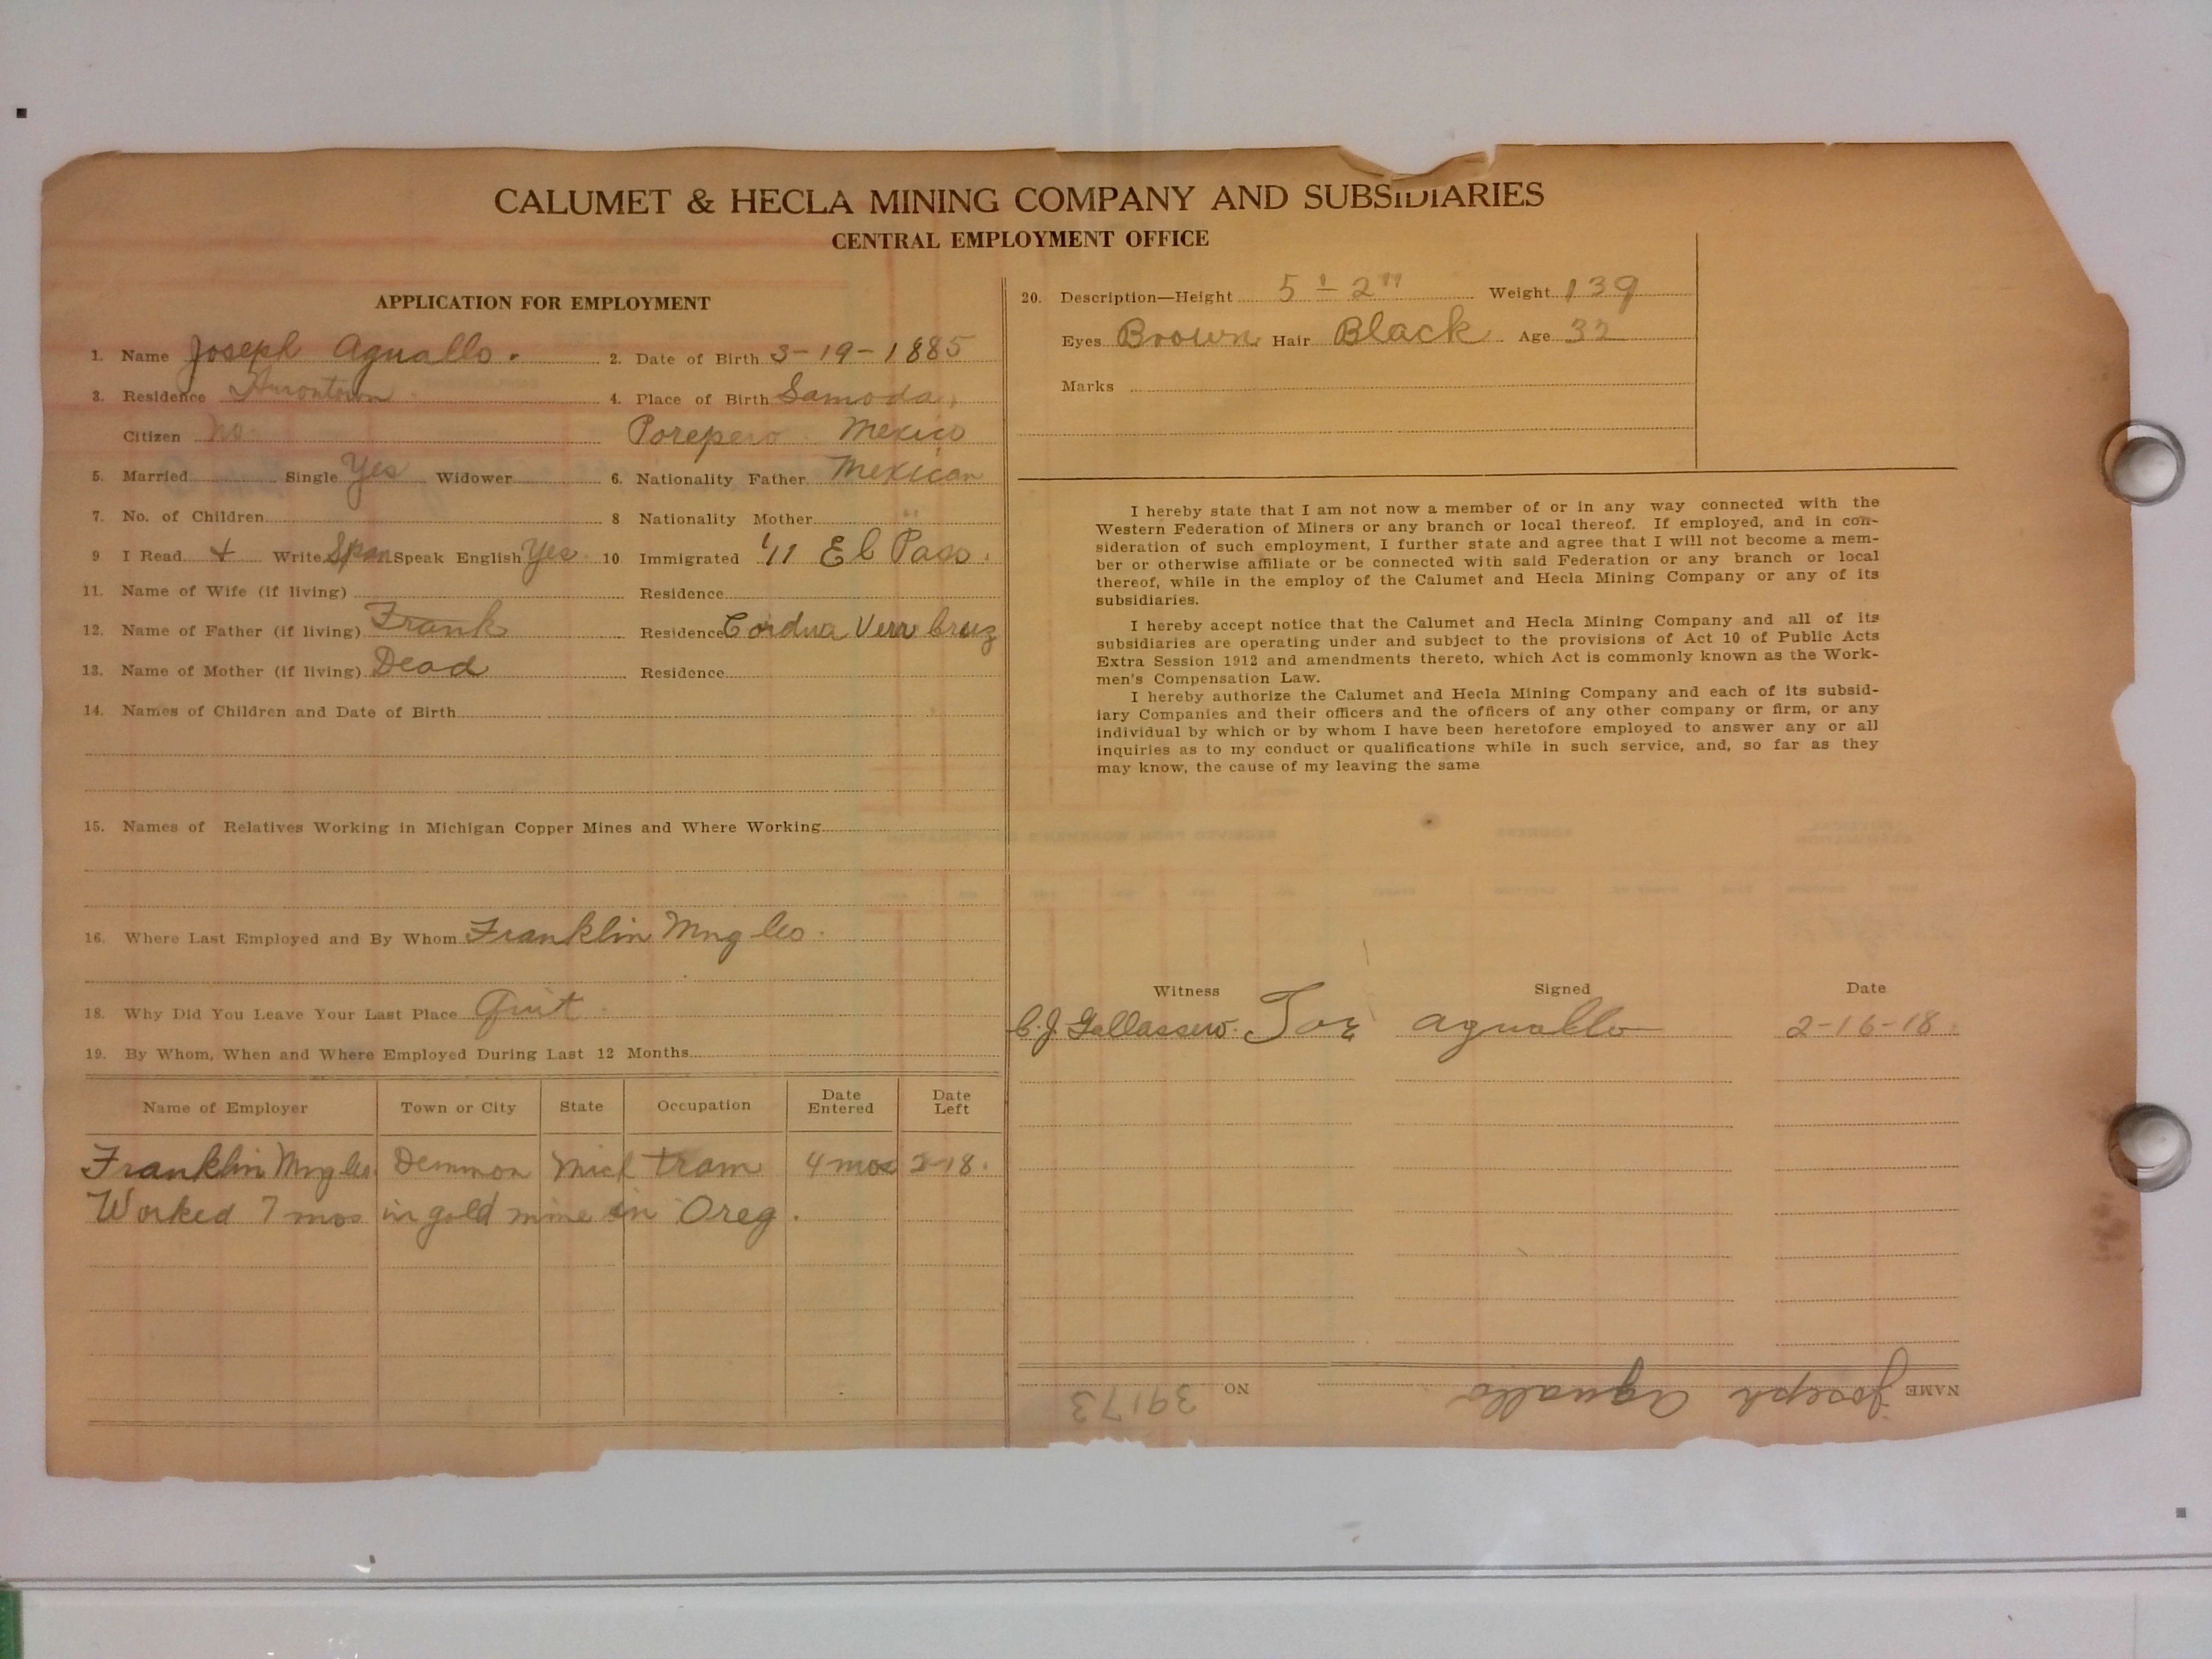 CALUMET & HECLA MINING COMPANY AND SUBSIDIARIES
CENTRAL EMPLOYMENT OFFICE
APPLICATION FOR EMPLOYMENT
1. Name Joseph Aguallo.
2. Date of Birth 3-19-1885
3. Residence Hurontown
4. Place of Birth Samoda,
Citizen no
Porepero Mexico
5. Married Single Yes Widower
6. Nationality Father Mexican
7. No. of Children
8 Nationality Mother "
9 I Read + Write Span Speak English Yes
10 Immigrated '11 El Paso.
11. Name of Wife (if living) Residence
12. Name of Father (if living) Frank Residence Cordua Vera Cruz
13. Name of Mother (if living) Dead Residence
14. Names of Children and Date of Birth
15. Names of Relatives Working in Michigan Copper Mines and Where Working
16. Where Last Employed and By Whom Franklin Mng Co.
18. Why Did You Leave Your Last Place Quit
19. By Whom, When and Where Employed During Last 12 Months
Name of Employer Town or City State Occupation Date Entered Date Left
Franklin Mng Co. Demmon Mich tram 4 mos 2-18.
Worked 7 mos in gold mine in Oreg.
20. Description—Height 5'-2" Weight 139
Eyes Brown Hair Black Age 32
Marks
I hereby state that I am not now a member of or in any way connected with the
Western Federation of Miners or any branch or local thereof. If employed, and in con-
sideration of such employment, I further state and agree that I will not become a mem-
ber or otherwise affiliate or be connected with said Federation or any branch or local
thereof, while in the employ of the Calumet and Hecla Mining Company or any of its
subsidiaries.
I hereby accept notice that the Calumet and Hecla Mining Company and all of its
subsidiaries are operating under and subject to the provisions of Act 10 of Public Acts
Extra Session 1912 and amendments thereto, which Act is commonly known as the Work-
men's Compensation Law.
I hereby authorize the Calumet and Hecla Mining Company and each of its subsid-
iary Companies and their officers and the officers of any other company or firm, or any
individual by which or by whom I have been heretofore employed to answer any or all
inquiries as to my conduct or qualifications while in such service, and, so far as they
may know, the cause of my leaving the same
Witness Signed Date
C. J. Joe aguallo 2-16-18.
NAME Joseph Aguallo NO 39173